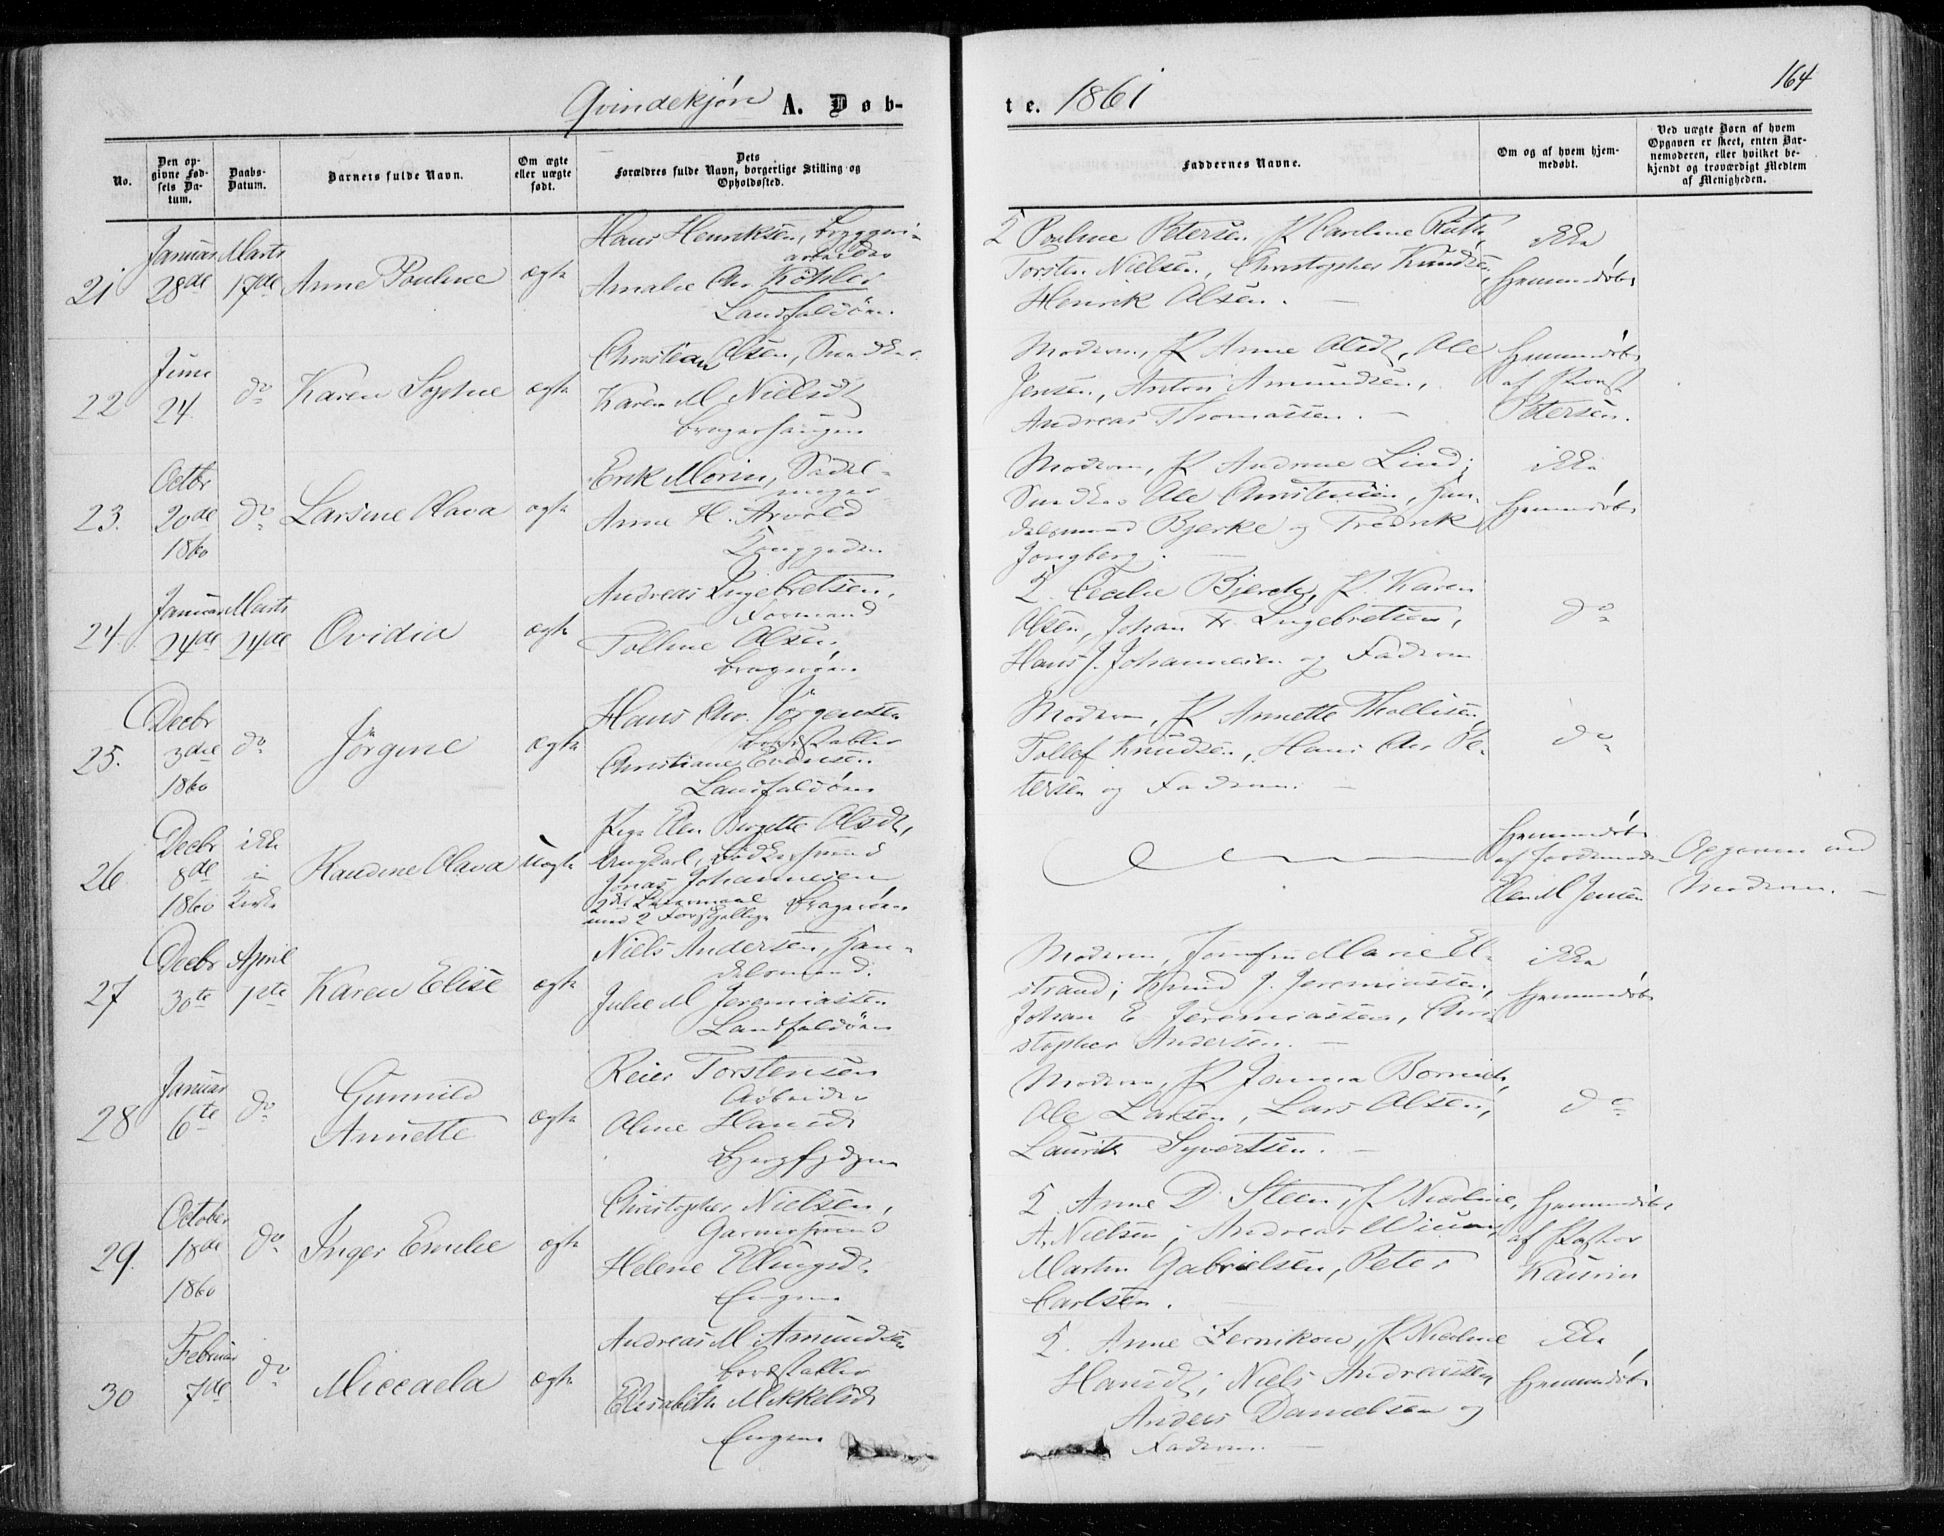 164
Qvindekjøn A. Døb-
te. 1861
No.
Den op-
givne Fød-
sels Da-
tum.
Daabs-
Datum.
Barnets fulde Navn.
Om ægte
eller uægte
født.
Dets
Forældres fulde Navn, borgerlige Stilling og
Opholdssted.
Faddernes Navne.
Om og af hvem hjem-
medøbt.
Ved uægte Børn af hvem
Opgaven er skeet, enten Bar-
nemoderen, eller hvilket be-
kjendt og troværdigt Medlem
af Menigheden.
21
Januar
28de
Marts
17de
Anne Pouline
ægte
Hans Henriksen, Bryggeri-
arbeider
Amalie Chr. Köhler
Landfaldöen
2 Pouline Petersen, P Caroline Ruth,
Torsten Nielsen, Christopher Knudsen,
Henrik Olsen.
ikke
hjemmedøbt
22
Juni
24.
do
Karen Sophie
ægte
Christian Olsen, Snedker
Karen M Nielsdt
Bragerhaugen
Moderen, P Anne Olsdt, Ole
Jensen, Anton Amundsen,
Andreas Thomassen.
hjemmedøbt
af Provst
Petersen.
23.
Octbr
20de
1860
do
Larsine Olava
ægte
Erik Morin, Sadel-
mager
Anne H. Arvold
Konggaden
Moderen, P Andrine Lind;
Snedker Ole Christensen, Han-
delsmand Bjerke og Fredrik
Jongberg.
ikke
hjemmedøbt
24.
Januar
24de
Marts
24de
Ovidia
ægte
Andreas Ingebretsen,
Formand
Tolline Olsen
Bragerøen
2. Cecilie Bjerck, P. Karen
Olsen, Johan Fr. Ingebretsen,
Hans J. Johannesen og Faderen
do
25.
Decbr
3die
1860
do
Jörgine
ægte
Hans Chr. Jörgensen
Bordstabler
Christiane Evensen
Landfaldöen
Moderen, P Annette Thollisen,
Tollef Knudsen, Hans Chr Pe-
tersen og Faderen.
do
26
Decbr
8de
1860
ikke
i
Kirke
Randine Olava
Uægte
Pige Elen Birgitte Olsdt,
Ungkarl, Bødkersvend
Jonas Johannesen
2det Leiermaal Bragerøen
med 2 Forskjellige
hjemmedøbt
af Jordemoder
Elen M Jensen
Opgaven ved
Moderen.
27
Decbr
30te
April
1ste
Karen Elise
ægte
Niels Andersen, Han-
delsmand.
Julie M Jeremiassen
Landfaldöen
Moderen, Jomfru Marie El-
strand; Knud J. Jeremiassen,
Johan E Jeremiassen, Chri-
stopher Andersen.
ikke
hjemmedøbt
28
Januar
6te
do
Gunnild
Annette
ægte
Reier Torstensen
Arbeider
Oline Hansdt
Moderen, P Janna
Ole Larsen, Lars Olsen,
Laurits Syvertsen.
do
29.
October
18de
1860
do
Inger Emilie
ægte
Christopher Nielsen,
Garversvend
Helene Ellingsdt.
Engene
2. Anne D. Steen, P Nicoline
A. Nielsen; Andreas
Martin Gabrielsen, Peter
Carlsen.
hjemmedøbt
af Pastor
Kaurin
30
Februar
7de
do
Miccaela
ægte
Andreas M Amundsen
Bordstabler
Elisabeth Mikkelsdt
Engene
2. Anne Zernikow, P Nicoline
Hansdt; Niels Andreassen,
Anders Danielsen og
Faderen.
ikke
hjemmedøbt